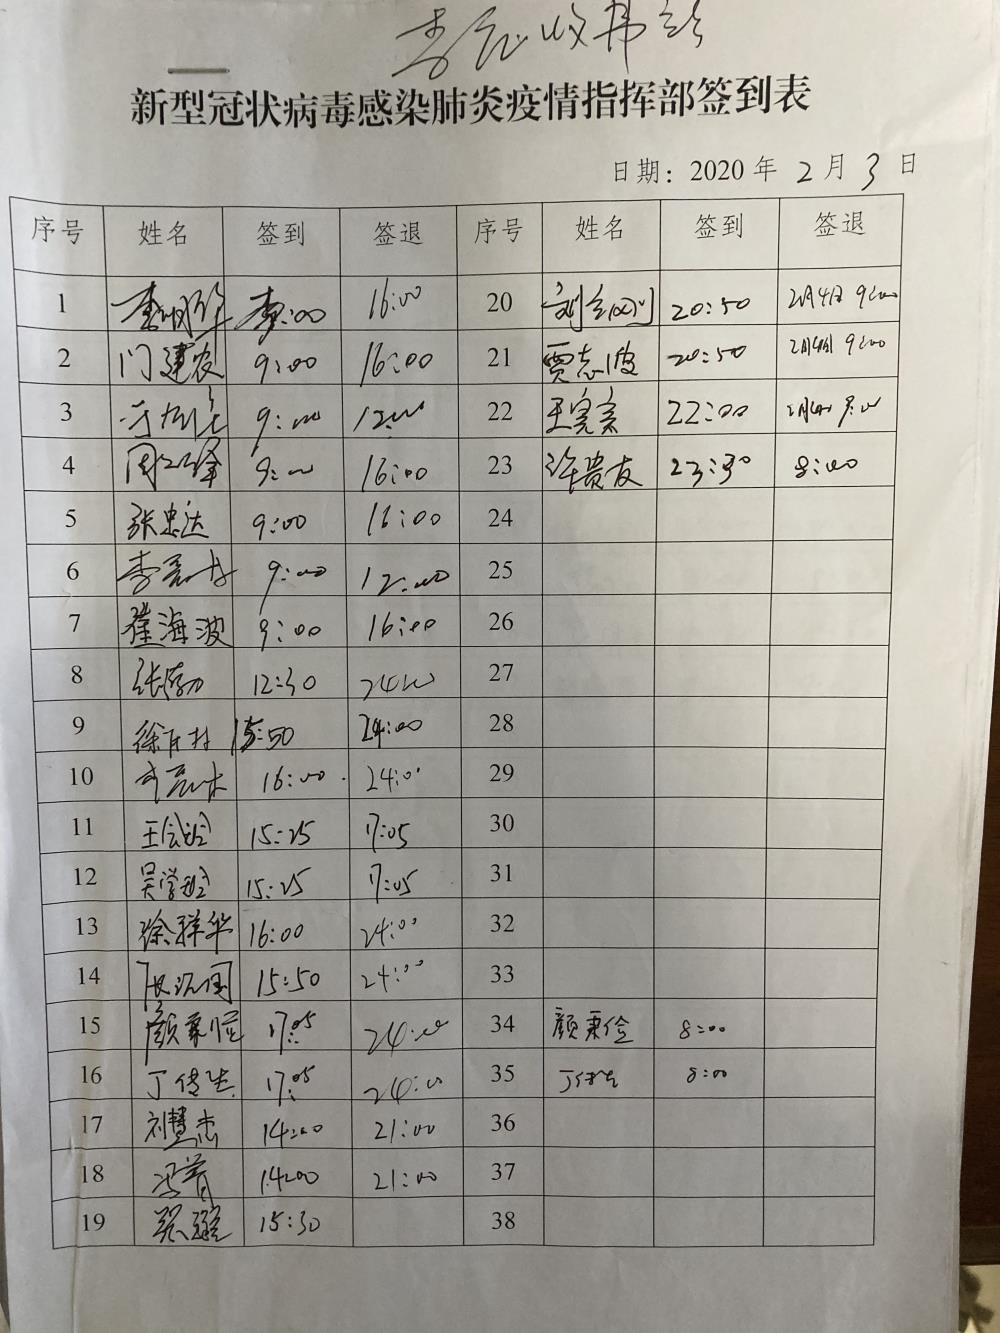 新型冠状病毒感染肺炎疫情指挥部签到表
日期：2020 年 2 月 3 日
序号 姓名 签到 签退 序号 姓名 签到 签退
1 16:00 20 20:50 2月4日 9:00
2 门建农 9:00 16:00 21 贾志波 20:50 2月4日 9:00
3 9:00 12:00 22 王宪宗 22:00 2月4日 8:00
4 9:00 16:00 23 许贵友 23:30 8:00
5 张忠达 9:00 16:00 24
6 李亮村 9:00 12:00 25
7 崔海波 9:00 16:00 26
8 12:30 24:00 27
9 15:50 24:00 28
10 16:00 24:00 29
11 15:25 17:05 30
12 15:25 17:05 31
13 徐祥华 16:00 24:00 32
14 15:50 24:00 33
15 颜秉俭 17:05 24:00 34 颜秉俭 8:00
16 丁传生 17:05 24:00 35 丁传生 8:00
17 刘慧杰 14:00 21:00 36
18 冯菁 14:00 21:00 37
19 15:30 38